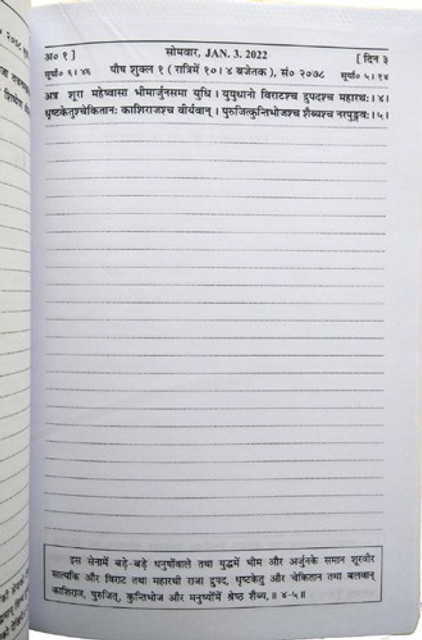 अ० १ ] सोमवार, JAN. 3. 2022 [ दिन ३
सूर्यो० ६।४६ पौष शुक्ल १ ( रात्रिमें १०।४ बजेतक ), सं० २०७८ सूर्या० ५।१४
अत्र शूरा महेष्वासा भीमार्जुनसमा युधि । युयुधानो विराटश्च द्रुपदश्च महारथः।४।
धृष्टकेतुश्चेकितानः काशिराजश्च वीर्यवान् । पुरुजित्कुन्तिभोजश्च शैब्यश्च नरपुङ्गवः।५।
इस सेनामें बड़े-बड़े धनुषोंवाले तथा युद्धमें भीम और अर्जुनके समान शूरवीर
सात्यकि और विराट तथा महारथी राजा द्रुपद, धृष्टकेतु और चेकितान तथा बलवान्
काशिराज, पुरुजित्, कुन्तिभोज और मनुष्योंमें श्रेष्ठ शैब्य,॥ ४-५॥